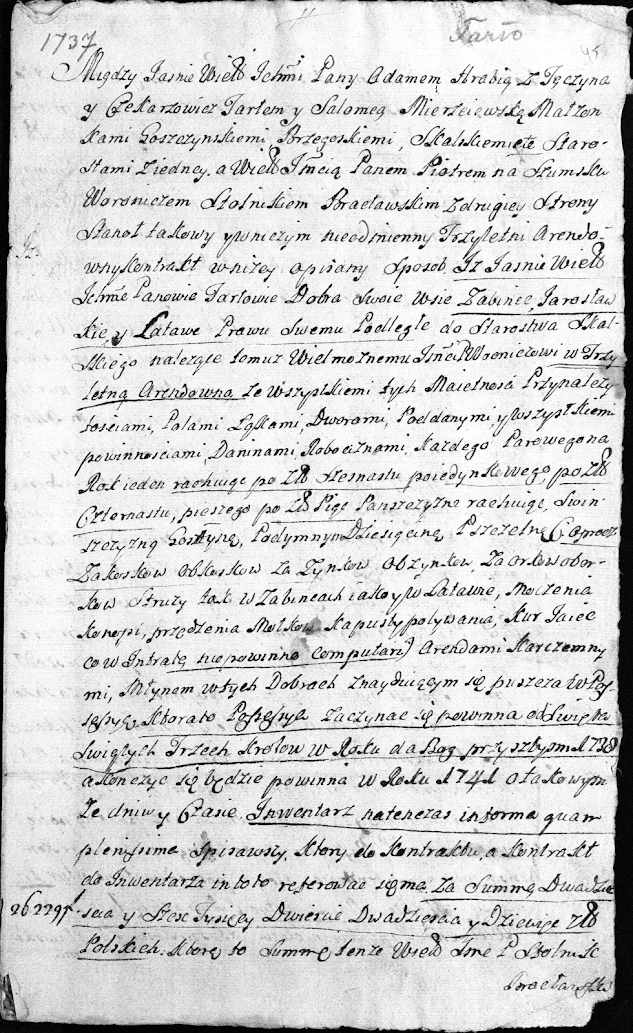 1737
Tarło
45
Między Jasnie Wielo Ichmi Pany Adamem Hrabią z Tęczyna
y Czekarzowic Tarłem y Salomeą Mierzeiewską Małzon
kami Goszczynskiemi, Brzegoskiemi, Skalskiemi etc Staro-
stami z iedney, a Wielo Jmcią Panem Piotrem na Szumsku
Woroniczem Stolnikiem Bracławskim z drugiey Strony
Stanoł takowy y w niczym nieodmienny Trzyletni Arendo-
wny kontrakt w nizey opisany sposob, Iz Jasnie Wielo
Ichmc Panowie Tarłowie Dobra Swoie wsie Zabince, Jarosław
kie, y Latawe Prawu Swemu Podległe do Starostwa Skal-
skiego nalezące temuz Wielmoznemu Jmci P Woroniczowi w Trzy
letnią Arendowną ze wszystkiemi tych Maiętnosci Przynalezy
tosciami, Polami Łąkami, Dworami, Poddanymi, y wszystkiemi
powinnosciami, Daninami, Robociznami, Kazdego Parowego na
Rok ieden rachuiąc po Zło szesnastu, poiedynkowego, po Zło
Czternastu, pieszego po Zło Pięc Panszczyznę rachuiąc, Swin-
szczyzną Gostyną, Podymnym Dziesięciną, Pszczelną (oprocz
Zakoskow Obkoskow Zazynkow Obzynkow, Zaorkow obor-
kow Strozy tak w Zabincach iako y w Latawie, Moczenia
konopi, przędzenia Motkow Kapusty polywania, Kur Jaiec
co w Intratę niepowinno computari) Arendami Karczemny
mi, Młynem w tych Dobrach znayduiącym się puszcza w Pos
sesyą, Ktorato Possesya zaczynac się powinna od Swięta
Swiętych Trzech Krolow w Roku da Bog przyszłym 1738
a konczyc się będzie powinna w Roku 1741 o takowym
ze dniu y Czasie, Inwentarz natenczas in forma quam
plenissima spisawszy, Ktory do Kontraktu, a kontrakt
do Inwentarza in toto referowac się ma, Za Summę Dwadzie
26229
scia y Szesc Tysięcy Dwiescie Dwadziescia y Dziewięc Zło
Polskich. Ktorą to Summę tenze Wielo Jmc P Stolnik
Bracławski